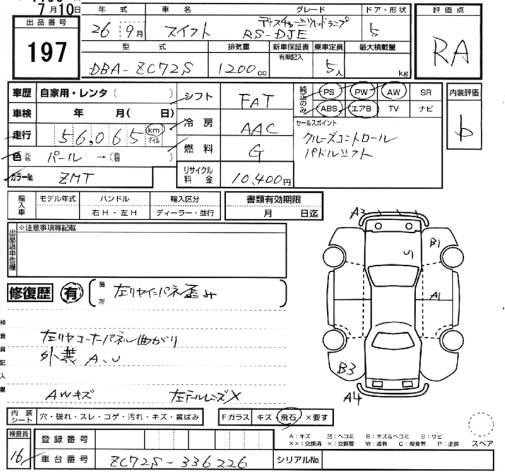 7月10日
出品番号
197
年式 車名 グレード ドア・形状
26年 9月 スイフト RS-DJE 5
型式 排気量 新車保証書 有無記入 乗車定員 最大積載量
DBA-ZC72S 1200cc 5人 kg
評価点
RA
車歴 自家用・レンタ( )
シフト FAT
純正のみ PS PW AW SR
ABS エアB TV ナビ
内装評価
車検 年 月( 日)
冷房 AAC
セールスポイント
クルーズコントロール
パドルシフト
走行 56,065 km マイル
燃料 G
色 パール →( )
カラーNo. ZMT
リサイクル料金 10,400円
輸入車 モデル年式 ハンドル 輸入区分
右H・左H ディーラー・並行
書類有効期限
月 日迄
出品店申告欄
※注意事項等記載
修復歴 有 箇所 左リヤインパネ歪み
A2
U1
B1
A1
B3
A4
検査員記入欄
左リヤコーナーパネル曲がり
外装 A、U
AWキズ 左テールレンズX
内装シート 穴・破れ・スレ・コゲ・汚れ・キズ・黄ばみ
Fガラス キズ・飛石・×要す
A:キズ U:ヘコミ B:キズ&ヘコミ S:サビ
スペア
検査員 16
登録番号
車台番号 ZC72S-336226
シリアルNo.